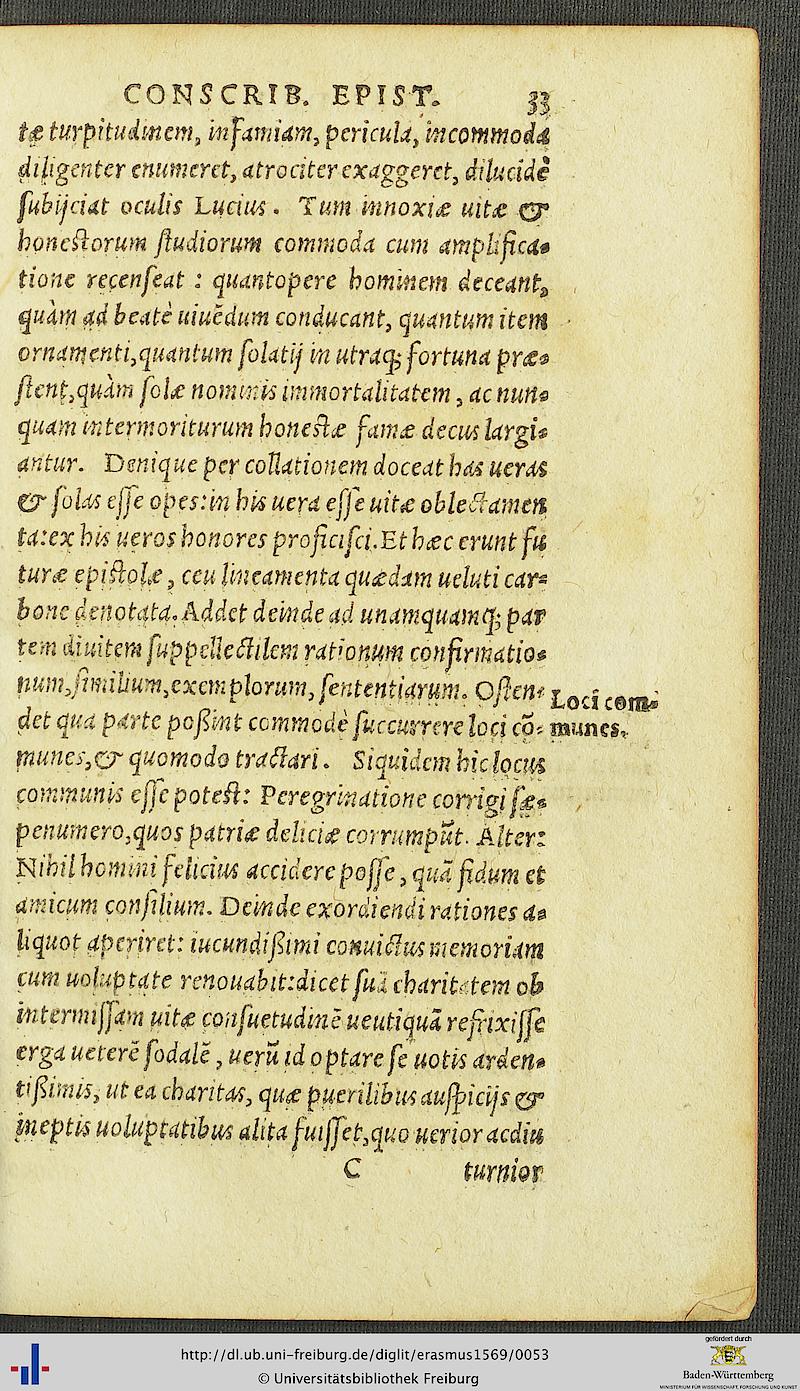 CONSCRIB. EPIST. 33
tæ turpitudinem, infamiam, pericula, incommoda
diligenter enumeret, atrociter exaggeret, dilucidè
ſubijciat oculis Lucius. Tum innoxiæ uitæ &
honeſtorum ſtudiorum commoda cum amplifica-
tione recenſeat : quantopere hominem deceant,
quàm ad beatè uiuẽdum conducant, quantum item
ornamenti, quantum ſolatij in utraq; fortuna præ-
ſtent, quàm ſolæ nominis immortalitatem, ac nun-
quam intermoriturum honeſtæ famæ decus largi-
antur. Denique per collationem doceat has ueras
& ſolas eſſe opes: in his uera eſſe uitæ oblectamen
ta: ex his ueros honores proficiſci. Et hæc erunt fu
turæ epiſtolæ, ceu lineamenta quædam ueluti car-
bone denotata. Addet deinde ad unamquamq; par
tem diuitem ſuppellectilem rationum confirmatio-
num, ſimilium, exemplorum, ſententiarum. Oſten-
det qua parte poßint commodè ſuccurrere loci cõ-
munes, & quomodo tractari. Siquidem hic locus
communis eſſe poteſt: Peregrinatione corrigi ſæ-
penumero, quos patriæ deliciæ corrumpũt. Alter:
Nihil homini felicius accidere poſſe, quã fidum et
amicum conſilium. Deinde exordiendi rationes a-
liquot aperiret: iucundißimi conuictus memoriam
cum uoluptate renouabit: dicet ſuã charitatem ob
intermiſſam uitæ conſuetudinẽ ueutiquã refrixiſſe
erga ueterẽ ſodalẽ, uerũ id optare ſe uotis arden-
tißimis, ut ea charitas, quæ puerilibus auſpicijs &
ineptis uoluptatibus alita fuiſſet, quo uerior ac diu
C turnior
Loci com-
munes.
http://dl.ub.uni-freiburg.de/diglit/erasmus1569/0053
© Universitätsbibliothek Freiburg
gefördert durch
Baden-Württemberg
MINISTERIUM FÜR WISSENSCHAFT, FORSCHUNG UND KUNST